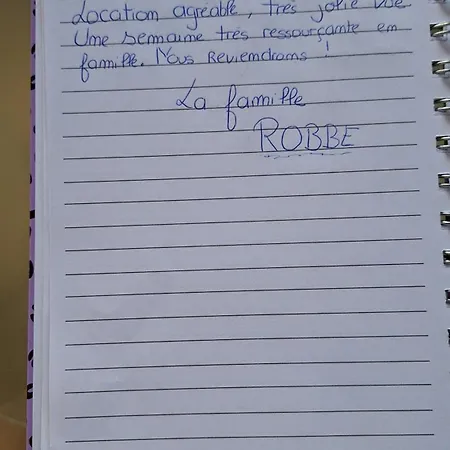 Location agréable, très jolie vue
Une semaine très ressourçante en
famille. Nous Reviendrons !
La famille
ROBBE